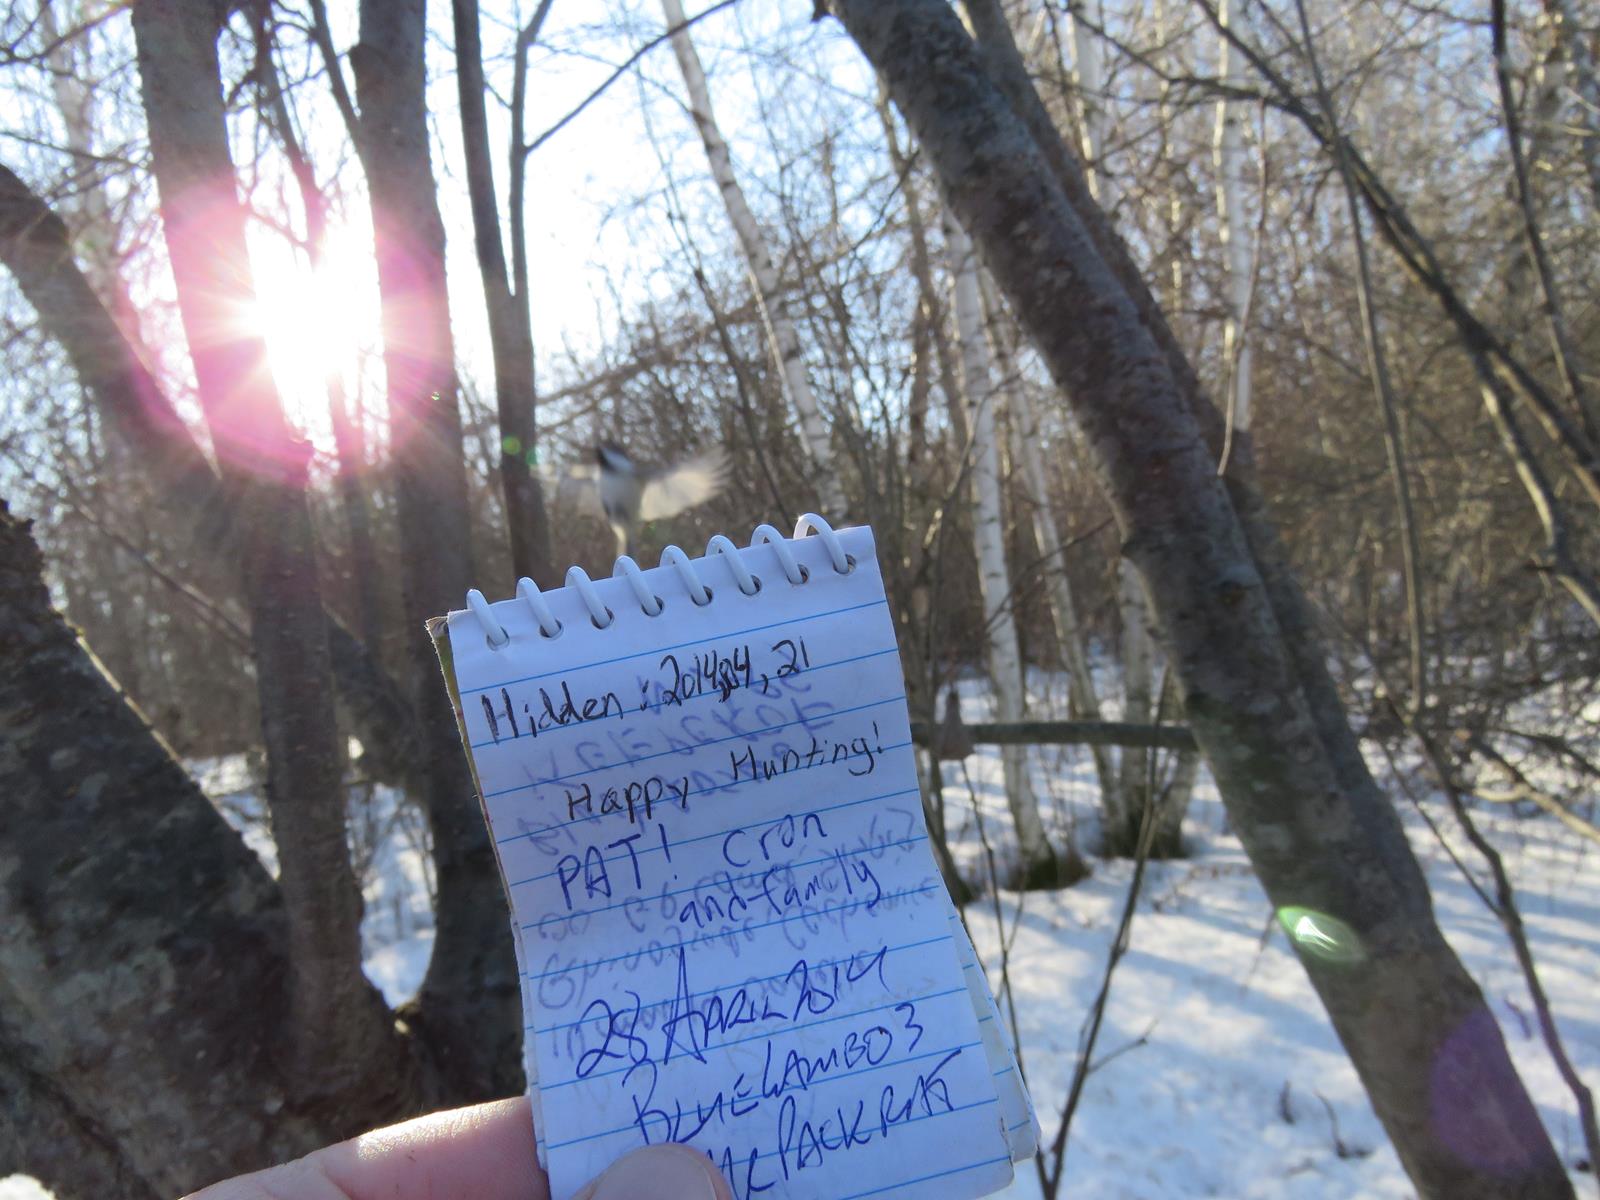 Hidden : 2014,04,21
Happy Hunting!
PAT! Cron
and family
28 APRIL 2014
BLUELAMBO3
Mc PACKRAT